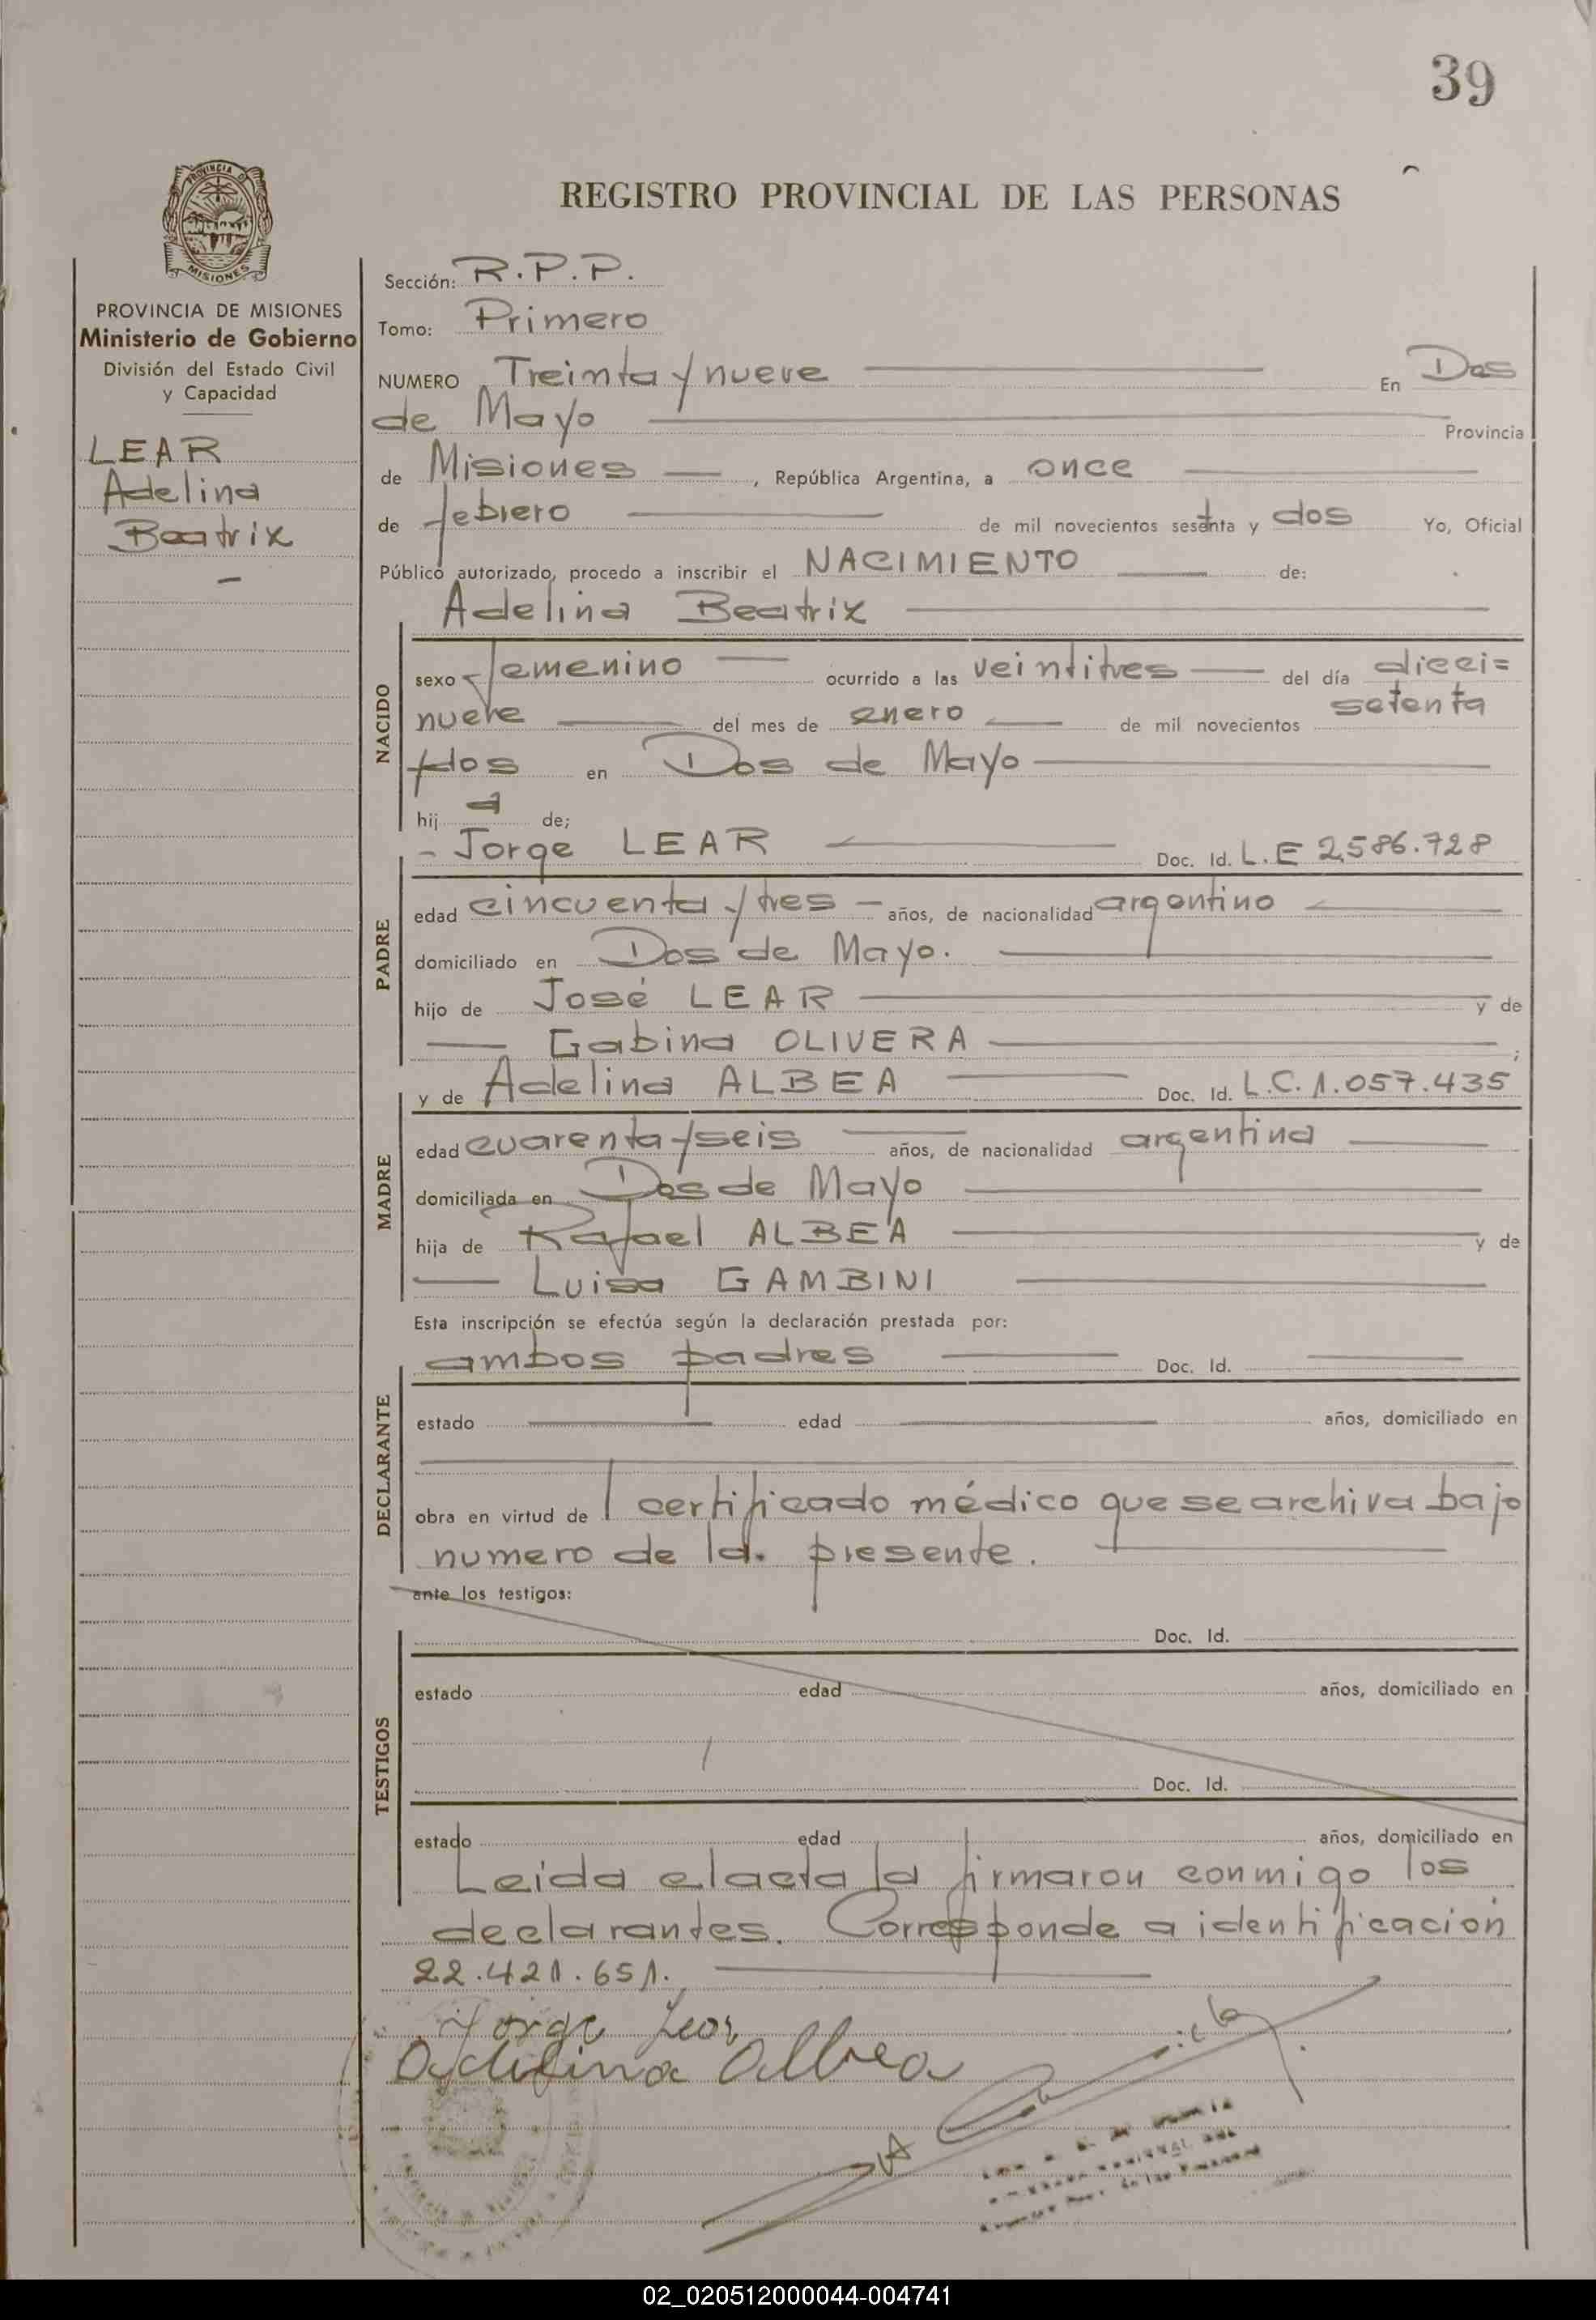 39
PROVINCIA DE
MISIONES
REGISTRO PROVINCIAL DE LAS PERSONAS
PROVINCIA DE MISIONES
Ministerio de Gobierno
División del Estado Civil
y Capacidad
LEAR
Adelina
Beatrix
Sección: R.P.P.
Tomo: Primero
NUMERO Treinta y nueve En Dos
de Mayo Provincia
de Misiones , República Argentina, a once
de febrero de mil novecientos sesenta y dos Yo, Oficial
Público autorizado, procedo a inscribir el NACIMIENTO de:
Adelina Beatrix
NACIDO
sexo femenino ocurrido a las veintitres del día dieci=
nueve del mes de enero de mil novecientos setenta
y dos en Dos de Mayo
hij a de;
- Jorge LEAR Doc. Id. L.E 2.586.728
PADRE
edad cincuenta y tres años, de nacionalidad argentino
domiciliado en Dos de Mayo.
hijo de José LEAR y de
Gabina OLIVERA ;
y de Adelina ALBEA Doc. Id. L.C. 1.057.435
MADRE
edad cuarenta y seis años, de nacionalidad argentina
domiciliada en Dos de Mayo
hija de Rafael ALBEA y de
Luisa GAMBINI
Esta inscripción se efectúa según la declaración prestada por:
ambos padres Doc. Id.
DECLARANTE
estado edad años, domiciliado en
obra en virtud de certificado médico que se archiva bajo
numero de la presente.
ante los testigos:
TESTIGOS
Doc. Id.
estado edad años, domiciliado en
Doc. Id.
estado edad años, domiciliado en
Leida el acta la firmaron conmigo los
declarantes. Corresponde a identificación
22.421.651.
Jorge Lear
Adelina Albea
02_020512000044-004741